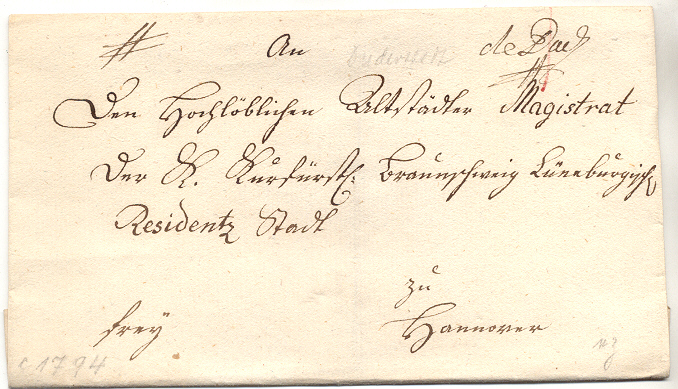 An
Den Hochlöblichen Altstädter Magistrat
Der K. Kurfürstl: Braunschweig Lüneburgisch
Residentz Stadt
zu
frey Hannover
c 1794